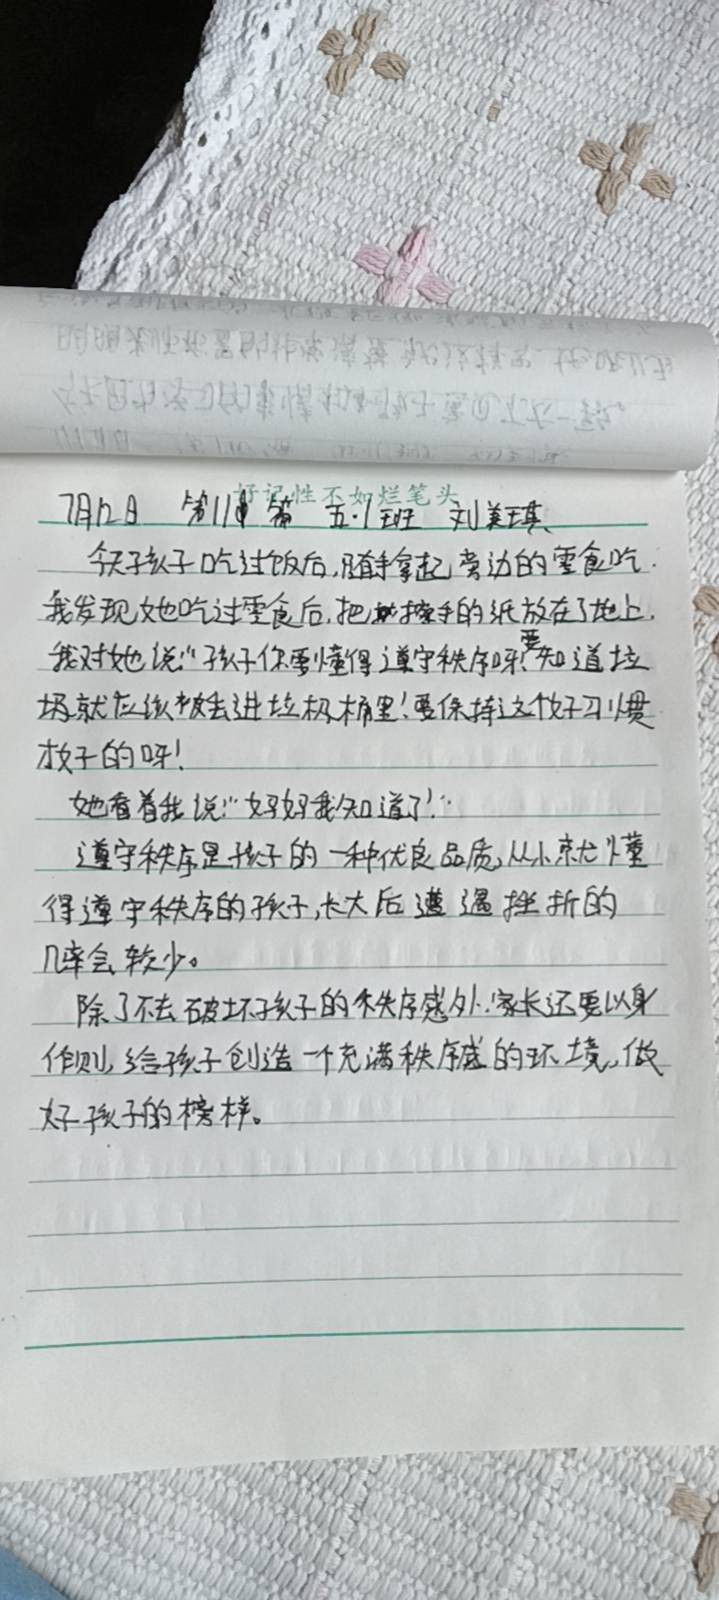 好记性不如烂笔头
7月12日 第11篇 五.1班 刘美琪
今天孩子吃过饭后,随手拿起旁边的零食吃.
我发现她吃过零食后,把擦手的纸放在了地上.
我对她说:“孩子你要懂得遵守秩序呀!要知道垃
圾就应该被丢进垃圾桶里!要保持这个好习惯
孩子的呀!
她看着我说:“好妈我知道了!”
遵守秩序是孩子的一种优良品质,从小就懂
得遵守秩序的孩子,长大后遭遇挫折的
几率会较少。
除了不去破坏孩子的秩序感外.家长还要以身
作则,给孩子创造一个充满秩序感的环境,做
好孩子的榜样。